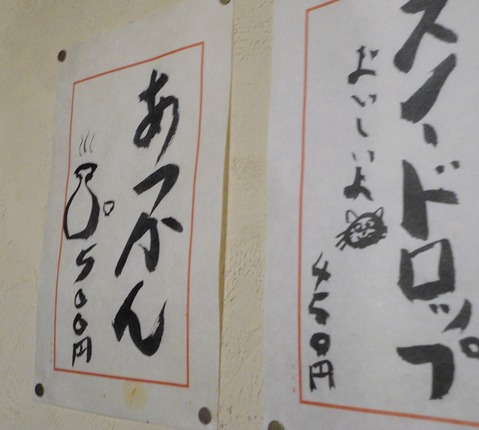 スノードロップ
おいしいよ
450円
あつかん
500円